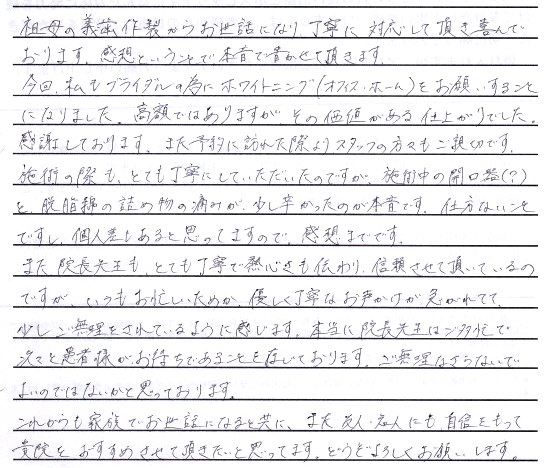 祖母の義歯作製からお世話になり、丁寧に対応して頂き喜んで
おります。感想ということで本音で書かせて頂きます。
今回、私もブライダルの為にホワイトニング(オフィス・ホーム)をお願いすること
になりました。高額ではありますが、その価値がある仕上がりでした。
感謝しております。また予約に訪れた際よりスタッフの方々もご親切です。
施術の際も、とても丁寧にしていただいたのですが、施術中の開口器(?)
と、脱脂綿の詰め物の痛みが、少し辛かったのが本音です。仕方ないこと
ですし、個人差もあると思ってますので、感想までです。
また院長先生も、とても丁寧で熱心さも伝わり、信頼させて頂いているの
ですが、いつもお忙しいためか、優しく丁寧なお声かけが急がれてて、
少しご無理をされているように感じます。本当に院長先生はご多忙で
次々と患者様がお待ちであることを存じております。ご無理なさらないで
よいのではないかと思っております。
これからも家族でお世話になると共に、また友人・知人にも自信をもって
貴院をおすすめさせて頂きたいと思ってます。どうぞよろしくお願いします。